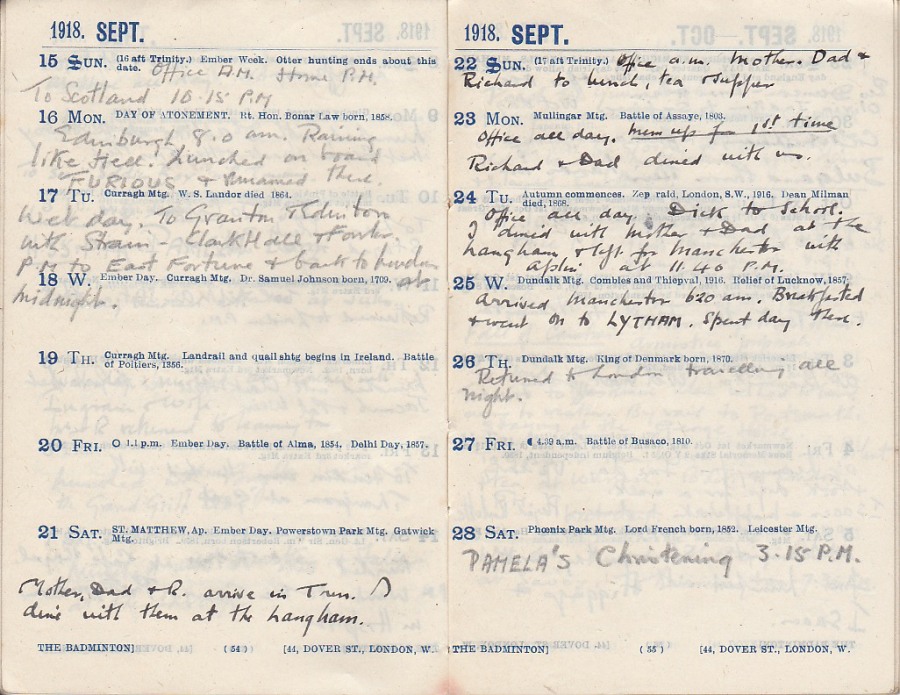 1918. SEPT.
15 SUN. (16 aft Trinity.) Ember Week. Otter hunting ends about this
date. Office A.M. Home P.M.
To Scotland 10.15 P.M
16 MON. DAY OF ATONEMENT. Rt. Hon. Bonar Law born, 1858.
Edinburgh 8.0 am. Raining
like Hell! Lunched on board
FURIOUS & remained there.
17 TU. Curragh Mtg. W. S. Landor died 1864.
Wet day. To Granton
with Strain - Clark Hall & Fowler
P.M to East Fortune & back to London
18 W. Ember Day. Curragh Mtg. Dr. Samuel Johnson born, 1709. At
midnight.
19 TH. Curragh Mtg. Landrail and quail shtg begins in Ireland. Battle
of Poitiers, 1356.
20 FRI. 1.1 p.m. Ember Day. Battle of Alma, 1854. Delhi Day, 1857.
21 SAT. ST. MATTHEW, Ap. Ember Day. Powerstown Park Mtg. Gatwick
Mtg.
Mother, Dad & R. arrive in Town. I
dine with them at the Langham.
THE BADMINTON] (54) [44, DOVER ST., LONDON, W.
1918. SEPT.
22 SUN. (17 aft Trinity.) Office a.m. Mother. Dad &
Richard to lunch, tea & supper
23 MON. Mullingar Mtg. Battle of Assaye, 1803.
Office all day. Mum up for 1st time
Richard & Dad dined with us.
24 TU. Autumn commences. Zep raid, London, S.W., 1916. Dean Milman
died, 1868.
Office all day Dick to School.
I dined with Mother & Dad at the
Langham & left for Manchester with
at 11.40 P.M.
25 W. Dundalk Mtg. Combles and Thiepval, 1916. Relief of Lucknow, 1857.
Arrived Manchester 620 am. Breakfasted
& went on to LYTHAM. Spent day there.
26 TH. Dundalk Mtg. King of Denmark born, 1870.
Returned to London travelling all
night.
27 FRI. 4.39 a.m. Battle of Busaco, 1810.
28 SAT. Phœnix Park Mtg. Lord French born, 1852. Leicester Mtg.
PAMELA'S Christening 3.15 P.M.
THE BADMINTON] (55) [44, DOVER ST., LONDON, W.